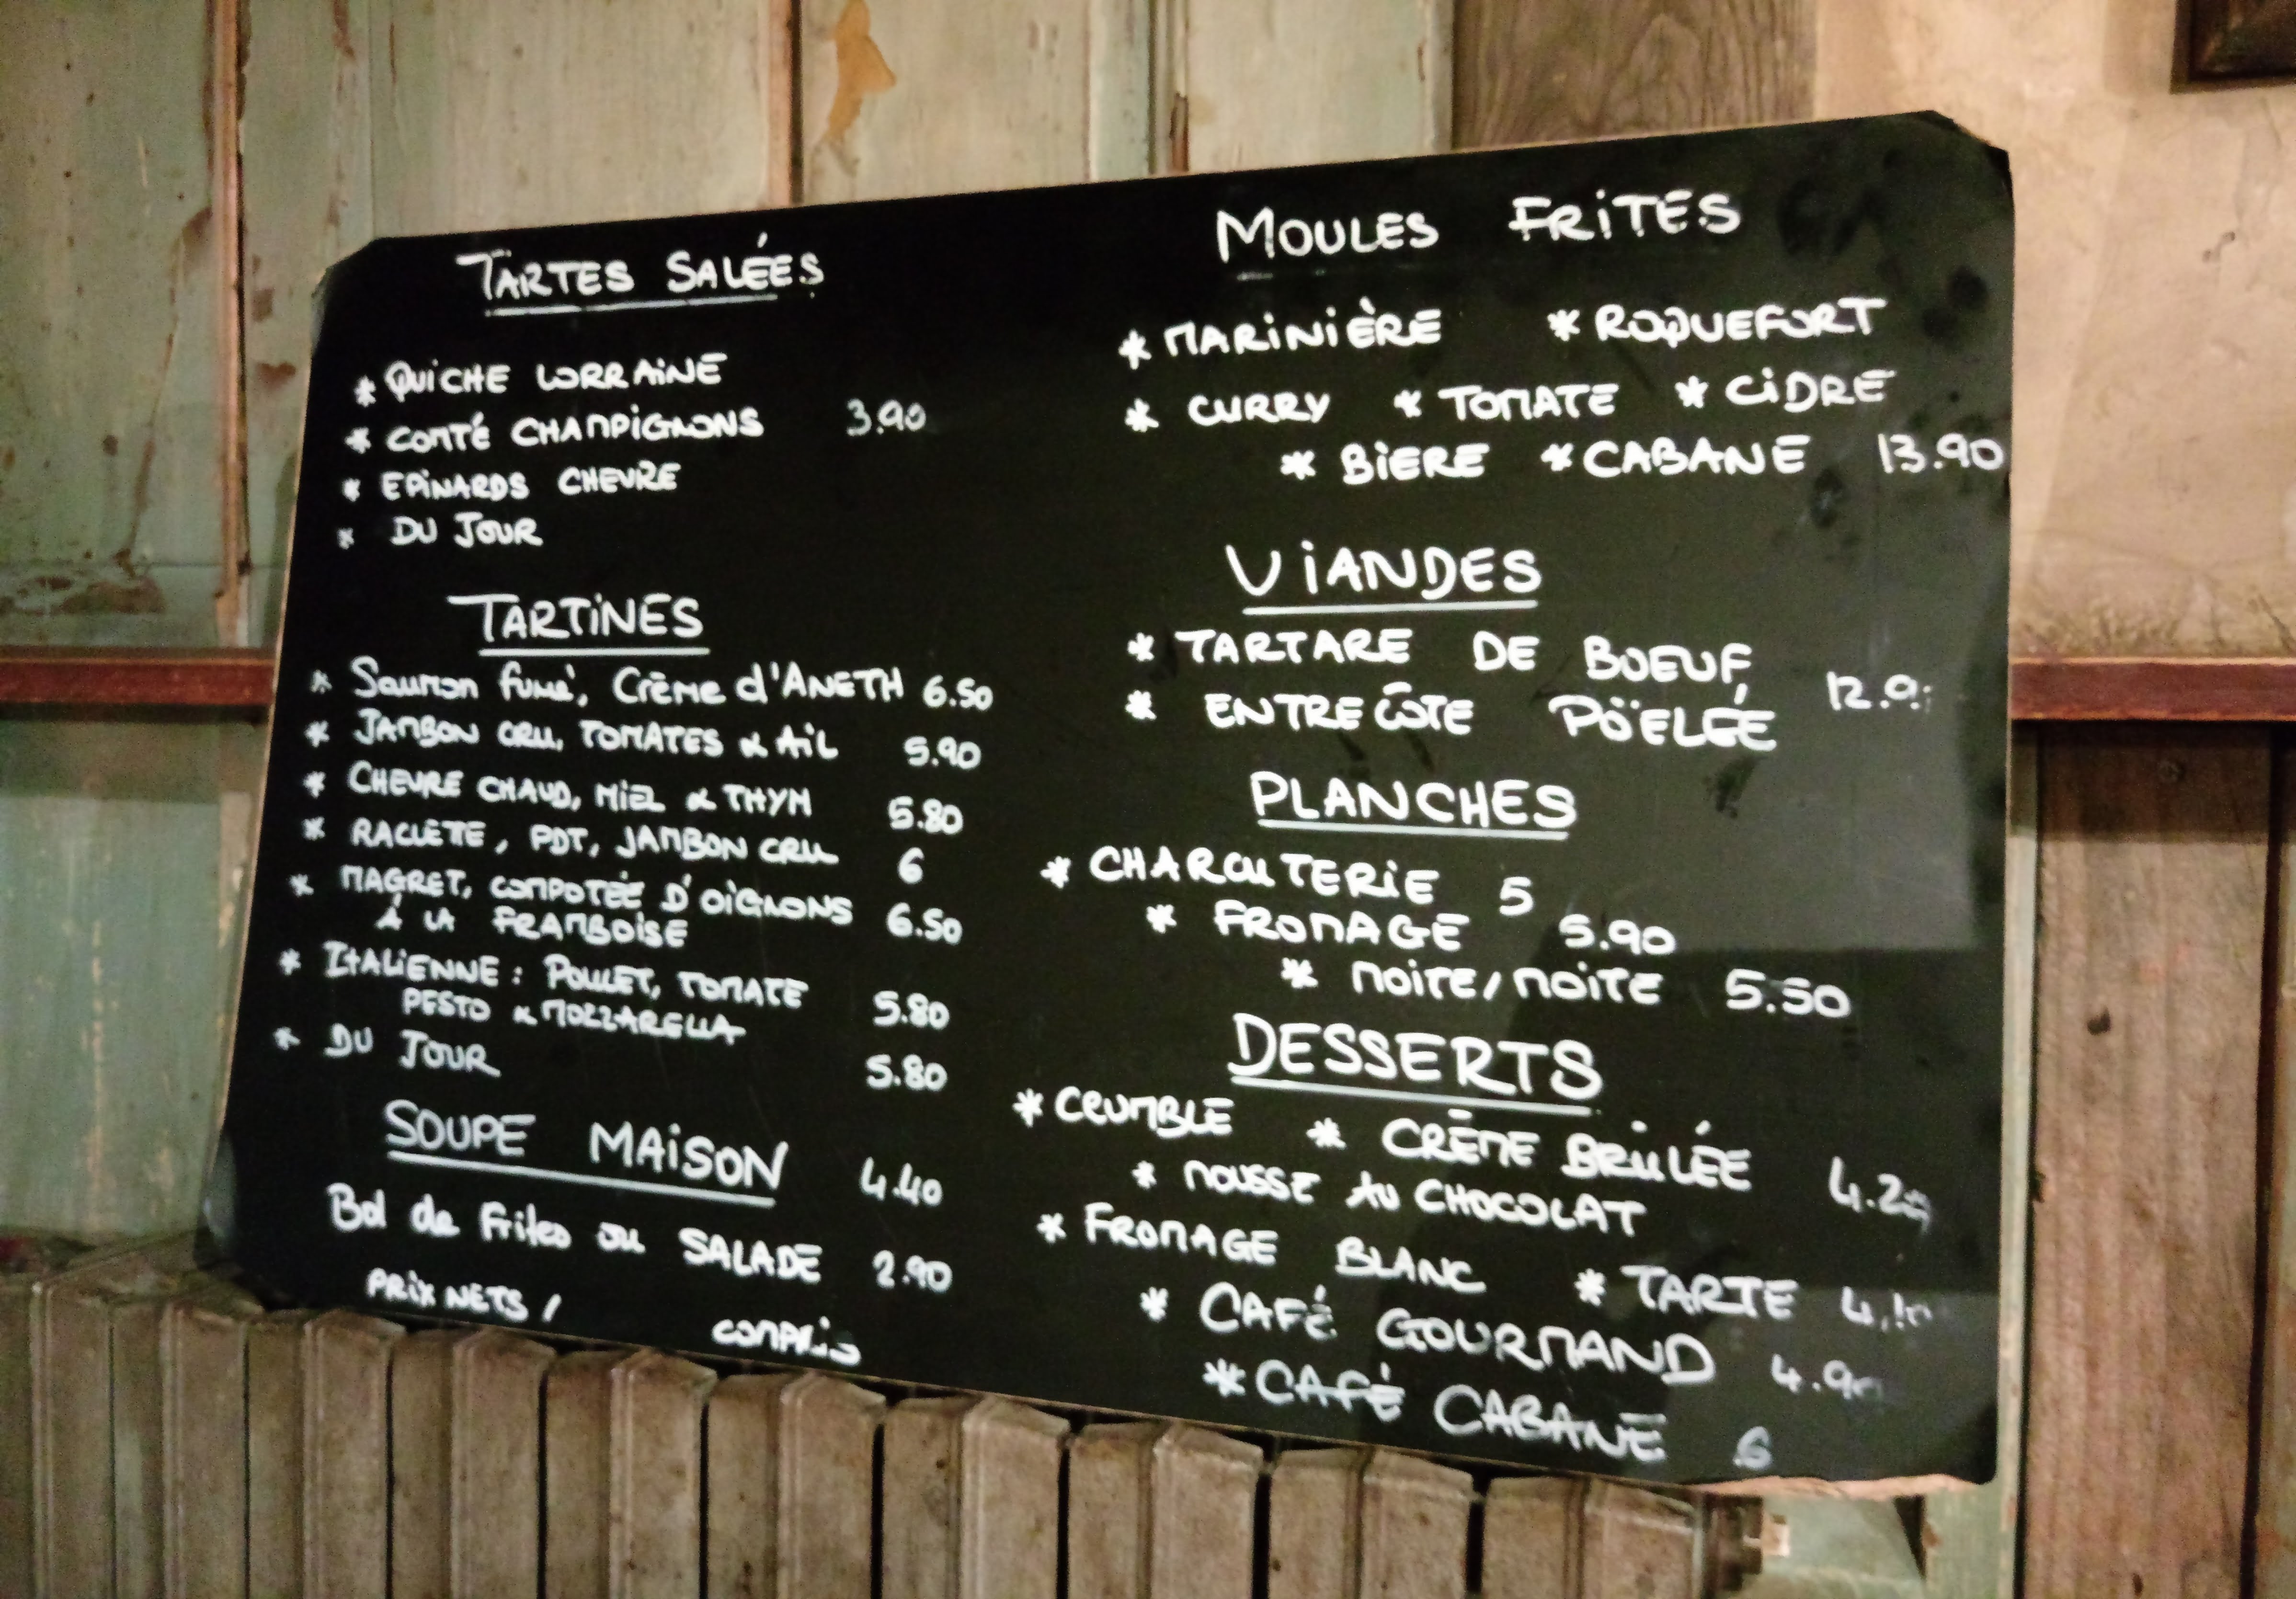 TARTES SALÉES
* QUICHE LORRAINE
* COMTÉ CHAMPIGNONS 3.90
* EPINARDS CHEVRE
* DU JOUR
TARTINES
* Saumon fumé, Crème d'ANETH 6.50
* JAMBON CRU, TOMATES & AIL 5.90
* CHEVRE CHAUD, MIEL & THYM 5.80
* RACLETE, PDT, JAMBON CRU 6
* MAGRET, COMPOTÉE D'OIGNONS 6.50
À LA FRAMBOISE
* ITALIENNE : POULET, TOMATE 5.80
PESTO & MOZZARELLA
* DU JOUR 5.80
SOUPE MAISON 4.40
Bol de Frites ou SALADE 2.90
PRIX NETS /
compris
MOULES FRITES
* MARINIÈRE * ROQUEFORT
* CURRY * TOMATE * CIDRE
* BIERE * CABANE 13.90
VIANDES
* TARTARE DE BOEUF
* ENTRECÔTE PÖELÉE
PLANCHES
* CHARCUTERIE 5
* FROMAGE 5.90
* MOITE/MOITE 5.50
DESSERTS
* CRUMBLE * CRÈME BRÛLÉE
* MOUSSE AU CHOCOLAT
* FROMAGE BLANC * TARTE
* CAFÉ GOURMAND 4.90
* CAFÉ CABANE 6